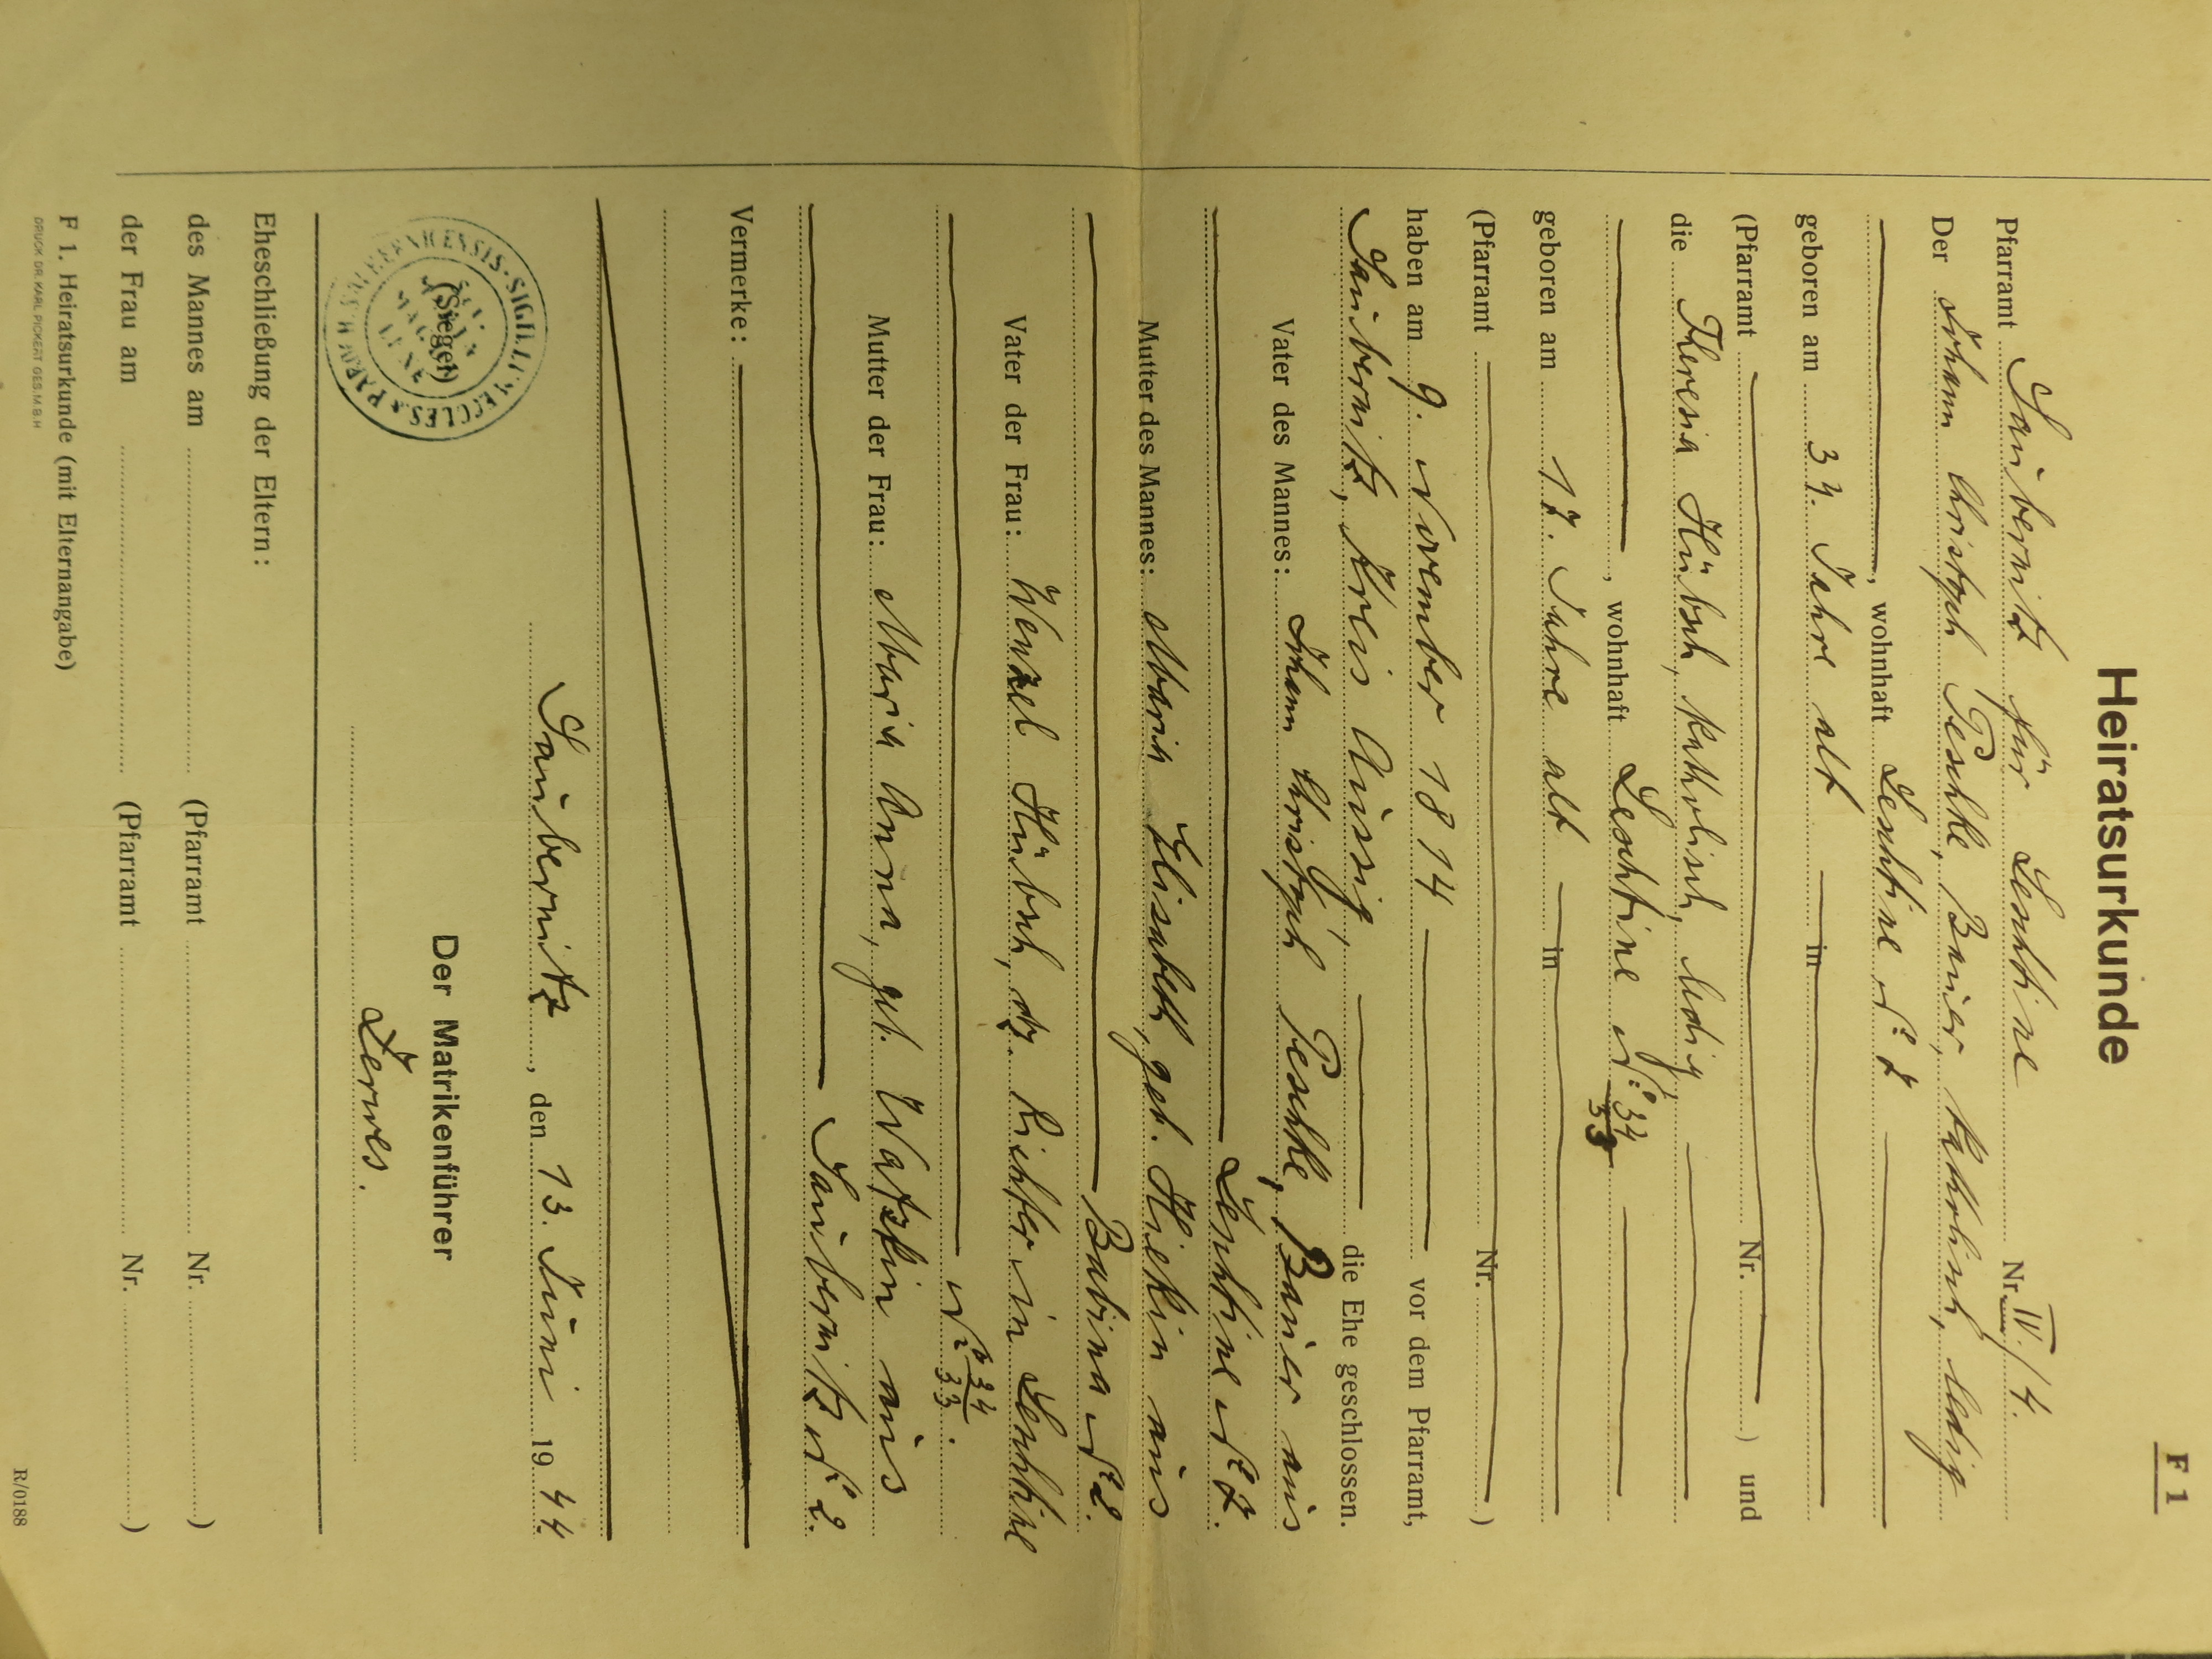 F 1
Heiratsurkunde
Pfarramt Saubernitz für Leschtine Nr. IV./4.
Der Johann Christoph Peschke, Bauer, katholisch, ledig
, wohnhaft Leschtine № 7
geboren am 34. Jahre alt in
(Pfarramt Nr. ) und
die Theresia Hübsch, katholisch, ledig,
, wohnhaft Leschtine № 34/33
geboren am 17. Jahre alt in
(Pfarramt Nr. )
haben am 9. November 1814 vor dem Pfarramt,
Saubernitz, Kreis Aussig, die Ehe geschlossen.
Vater des Mannes: Johann Christoph Peschke, Bauer aus
Leschtine № 7.
Mutter des Mannes: Maria Elisabeth, geb. Hiekin aus
Babina № 2.
Vater der Frau: Wenzel Hübsch, dz. Richter in Leschtine
№ 34/33.
Mutter der Frau: Maria Anna, geb. Watzkin aus
Saubernitz № 2.
Vermerke:
Saubernitz, den 13. Juni 1944.
SIGILLUM ECCLES
(Siegel)
Der Matrikenführer
Zerwes.
Eheschließung der Eltern:
des Mannes am (Pfarramt Nr. )
der Frau am (Pfarramt Nr. )
F 1. Heiratsurkunde (mit Elternangabe)
DRUCK DR. KARL PICKERT GES.M.B.H
R/0188